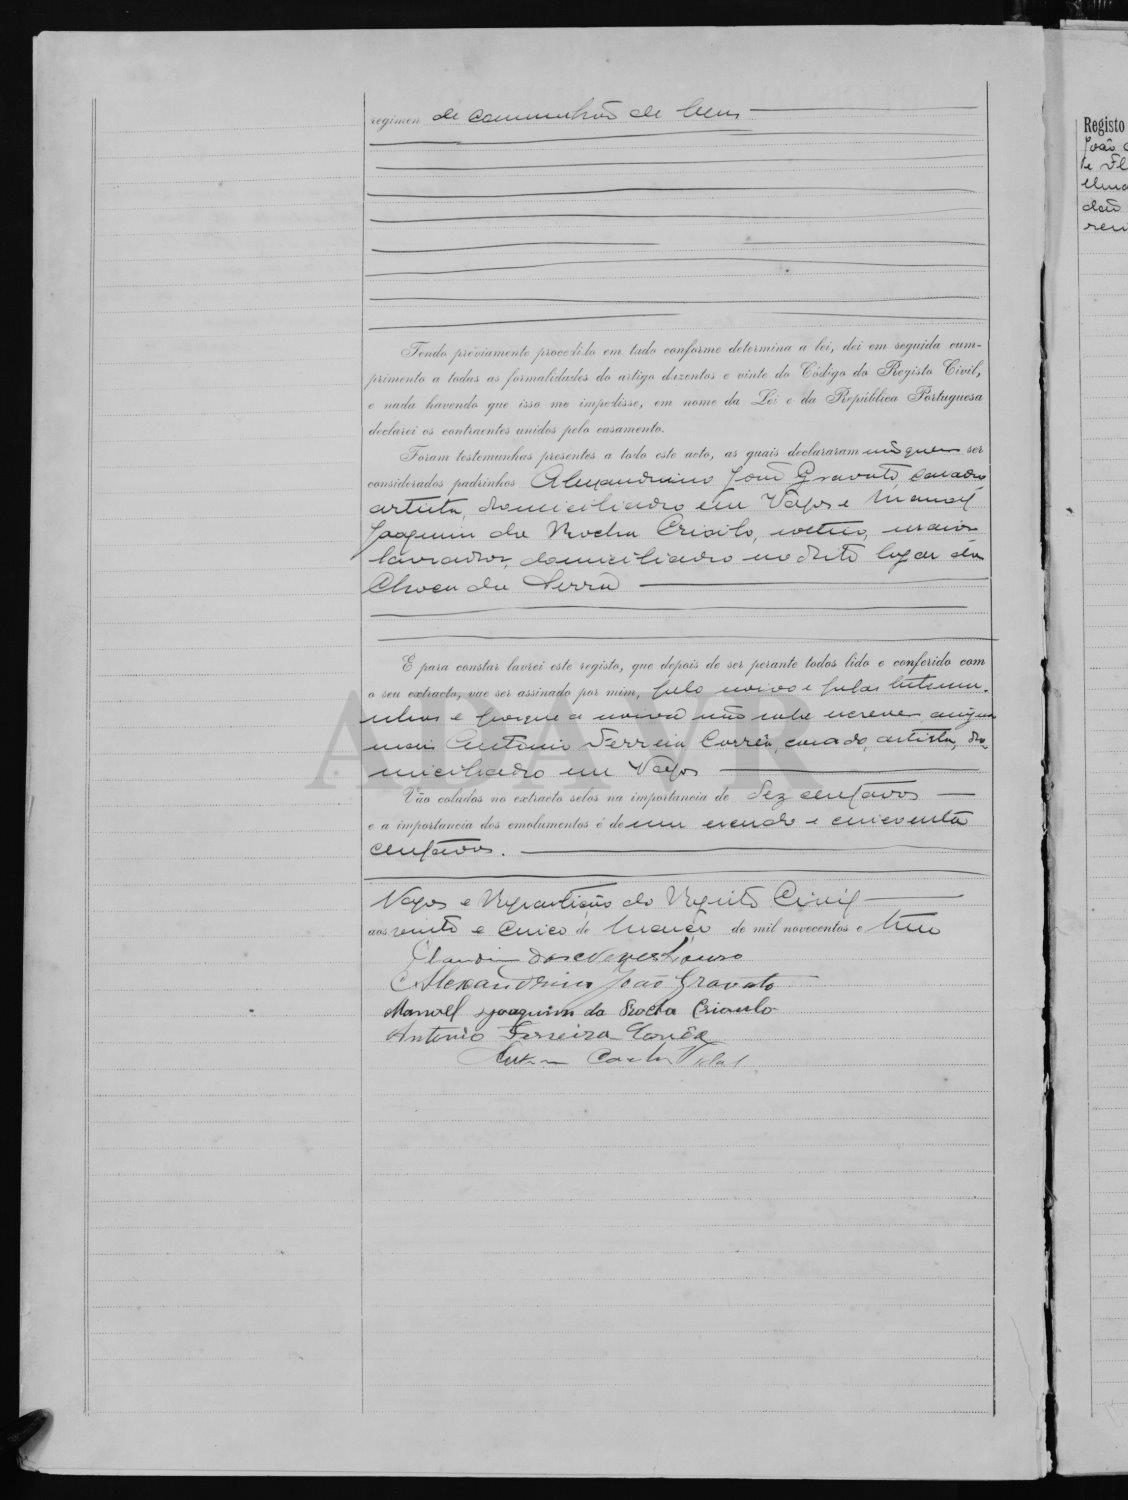 regimen de comunhão de bens
Tendo préviamente procedido em tudo conforme determina a lei, dei em seguida cum-
primento a todas as formalidades do artigo duzentos e vinte do Código do Registo Civil,
e nada havendo que isso me impedisse, em nome da Lei e da República Portuguesa
declarei os contraentes unidos pelo casamento.
Foram testemunhas presentes a todo este acto, as quais declararam não quer ser
considerados padrinhos Alexandrino João Gravato, casado
artista, domiciliado em Vagos e Manoel
Joaquim da Rocha Crioulo, solteiro, maior
lavrador, domiciliado no dito lugar da
Choca do
E para constar lavrei este registo, que depois de ser perante todos lido e conferido com
o seu extracto, vae ser assinado por mim, pelo noivo e pelas testemu-
nhas e porque a noiva não sabe escrever assigna
Antonio Ferreira Corrêa, casado, artista, do-
miciliado em Vagos
Vão colados no extracto selos na importancia de dez centavos
e a importancia dos emolumentos é de um escudo e cincoenta
centavos.
Vagos e Repartição do Registo Civil
aos vinte e cinco de Março de mil novecentos e
Alexandrino João Gravato
Manoel Joaquim da Rocha Crioulo
Antonio Ferreira Corrêa
ADAVR
Registo
João